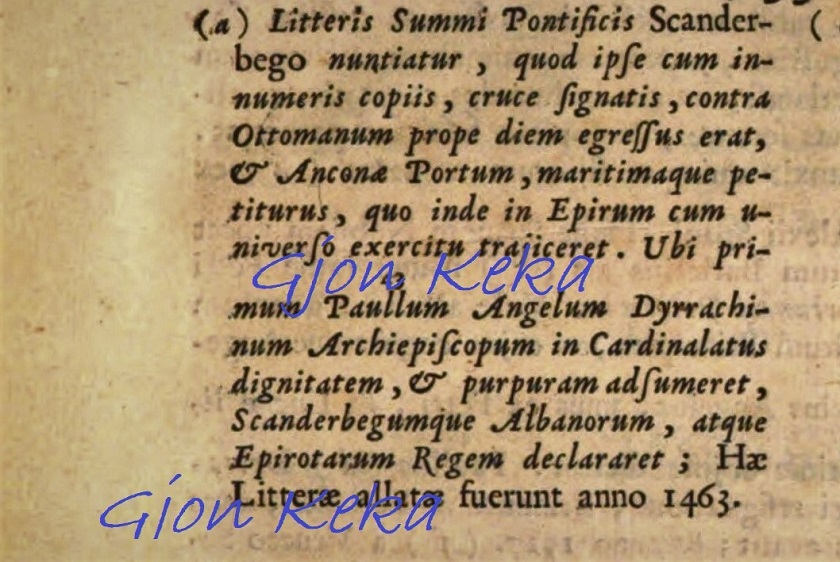 (a) Litteris Summi Pontificis Scander- (
bego nuntiatur, quod ipſe cum in-
numeris copiis, cruce ſignatis, contra
Ottomanum prope diem egreſſus erat,
& Anconæ Portum, maritimaque pe-
titurus, quo inde in Epirum cum u-
niverſo exercitu trajiceret. Ubi pri-
Gjon Keka
mum Paullum Angelum Dyrrachi-
num Archiepiſcopum in Cardinalatus
dignitatem, & purpuram adſumeret,
Scanderbegumque Albanorum, atque
Epirotarum Regem declararet; Hæ
Litteræ allatæ fuerunt anno 1463.
Gjon Keka